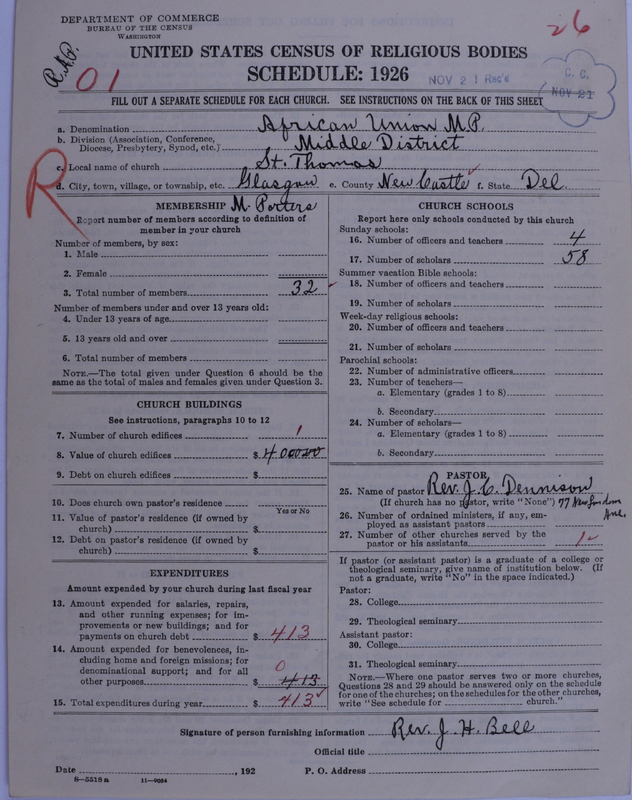 DEPARTMENT OF COMMERCE
BUREAU OF THE CENSUS
WASHINGTON
R.A.P.
01
26
UNITED STATES CENSUS OF RELIGIOUS BODIES
SCHEDULE: 1926
NOV 21 Rec'd
C. C.
NOV 21
FILL OUT A SEPARATE SCHEDULE FOR EACH CHURCH. SEE INSTRUCTIONS ON THE BACK OF THIS SHEET
R
a. Denomination African Union M.P.
b. Division (Association, Conference, Diocese, Presbytery, Synod, etc.) Middle District
c. Local name of church St. Thomas
d. City, town, village, or township, etc. Glasgow e. County New Castle f. State Del.
MEMBERSHIP M. Porters
Report number of members according to definition of
member in your church
Number of members, by sex:
1. Male
2. Female
3. Total number of members 32
Number of members under and over 13 years old:
4. Under 13 years of age
5. 13 years old and over
6. Total number of members
NOTE.—The total given under Question 6 should be the
same as the total of males and females given under Question 3.
CHURCH BUILDINGS
See instructions, paragraphs 10 to 12
7. Number of church edifices 1
8. Value of church edifices $ 40000
9. Debt on church edifices $
10. Does church own pastor's residence
Yes or No
11. Value of pastor's residence (if owned by
church) $
12. Debt on pastor's residence (if owned by
church) $
EXPENDITURES
Amount expended by your church during last fiscal year
13. Amount expended for salaries, repairs,
and other running expenses; for im-
provements or new buildings; and for
payments on church debt $ 413
14. Amount expended for benevolences, in-
cluding home and foreign missions; for
denominational support; and for all 0
other purposes $ 413
15. Total expenditures during year $ 413
CHURCH SCHOOLS
Report here only schools conducted by this church
Sunday schools:
16. Number of officers and teachers 4
17. Number of scholars 58
Summer vacation Bible schools:
18. Number of officers and teachers
19. Number of scholars
Week-day religious schools:
20. Number of officers and teachers
21. Number of scholars
Parochial schools:
22. Number of administrative officers
23. Number of teachers—
a. Elementary (grades 1 to 8)
b. Secondary
24. Number of scholars—
a. Elementary (grades 1 to 8)
b. Secondary
PASTOR
25. Name of pastor Rev. J. C. Dennison
(If church has no pastor, write "None") 77 New London
Ave.
26. Number of ordained ministers, if any, em-
ployed as assistant pastors
27. Number of other churches served by the
pastor or his assistants 1
If pastor (or assistant pastor) is a graduate of a college or
theological seminary, give name of institution below. (If
not a graduate, write "No" in the space indicated.)
Pastor:
28. College
29. Theological seminary
Assistant pastor:
30. College
31. Theological seminary
NOTE.—Where one pastor serves two or more churches,
Questions 28 and 29 should be answered only on the schedule
for one of the churches; on the schedules for the other churches,
write "See schedule for church."
Signature of person furnishing information Rev. J. H. Bell
Official title
Date , 192 P. O. Address
8—5518a 11—9084